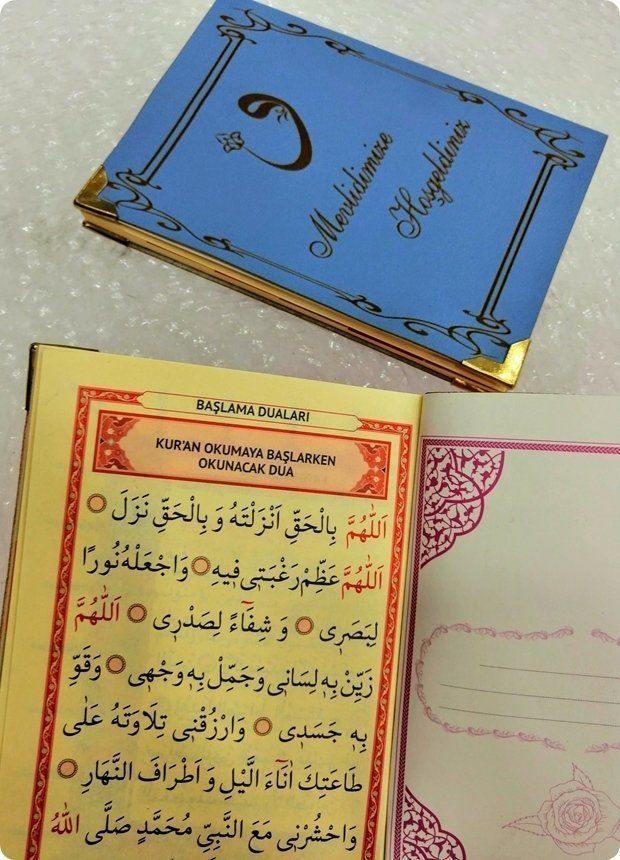 و
Mevlidimize
Hoşgeldiniz
BAŞLAMA DUALARI
KUR'AN OKUMAYA BAŞLARKEN
OKUNACAK DUA
اَللّٰهُمَّ بِالْحَقِّ اَنْزَلْتَهُ وَ بِالْحَقِّ نَزَلَ
اَللّٰهُمَّ عَظِّمْ رَغْبَتٖى فٖيهِ وَاجْعَلْهُ نُورًا
لِبَصَرٖى وَ شِفَٓاءً لِصَدْرٖى اَللّٰهُمَّ
زَيِّنْ بِهٖ لِسَانٖى وَجَمِّلْ بِهٖ وَجْهٖى وَقَوِّ
بِهٖ جَسَدٖى وَارْزُقْنٖى تِلَاوَتَهُ عَلٰى
طَاعَتِكَ اٰنَٓاءَ الَّيْلِ وَ اَطْرَافَ النَّهَارِ
وَاحْشُرْنٖى مَعَ النَّبِىِّ مُحَمَّدٍ صَلَّى اللّٰهُ